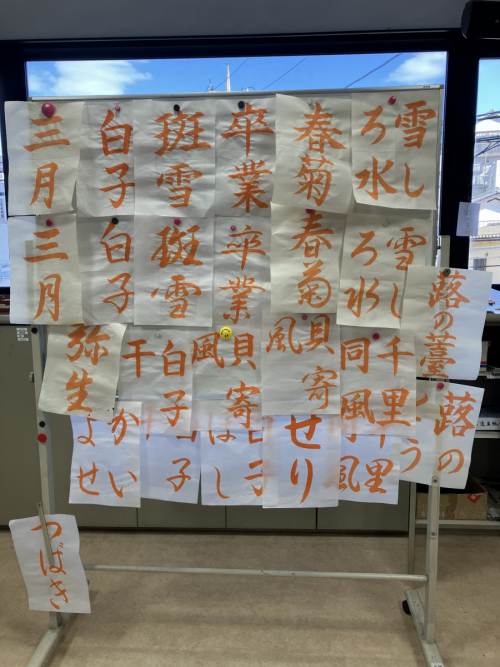 雪し
ろ水
春菊
卒業
斑雪
白子
三月
雪し
ろ水
春菊
卒業
斑雪
白子
三月
蕗の薹
千里
同風
貝寄
風
貝寄
風
白子
干
弥生
蕗の
う
千里
風
せり
子
し
子
かい
よせ
つばき